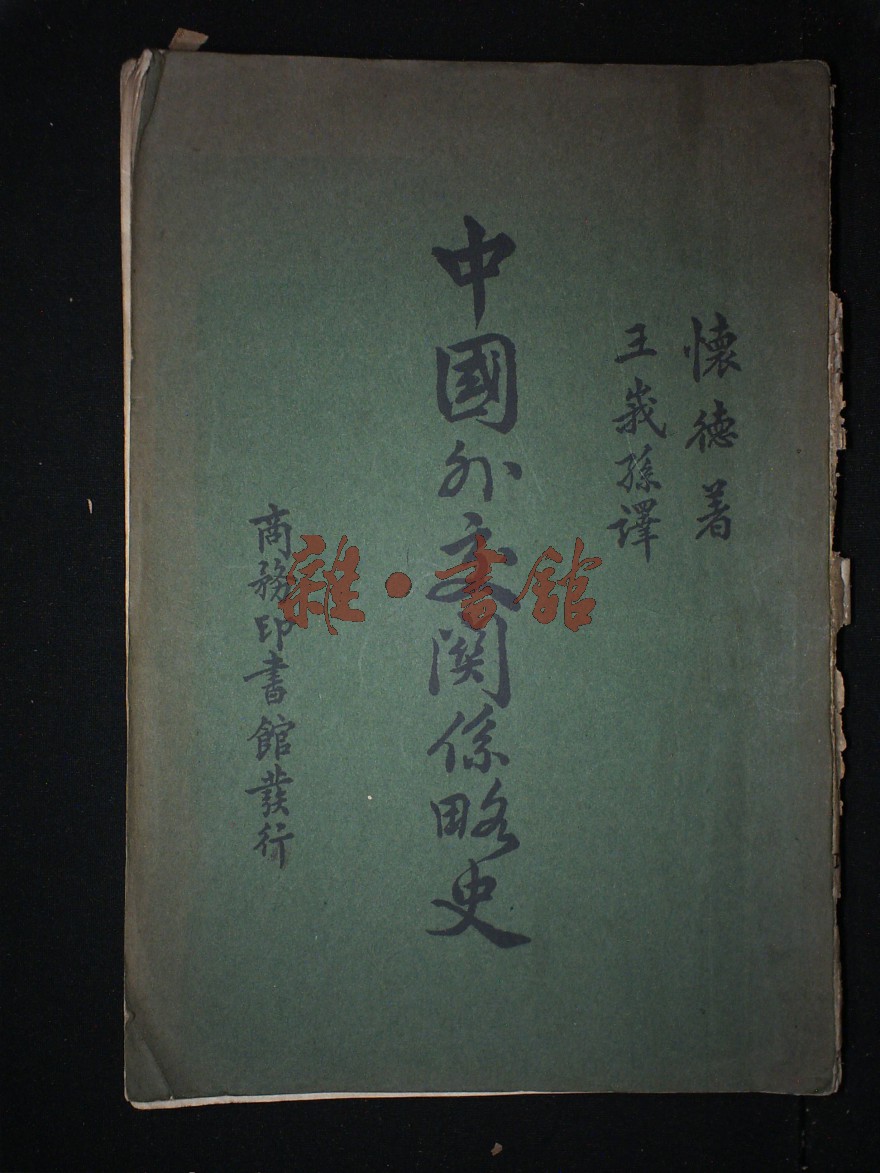 懷德著
王峩孫譯
中國外交関係略史
商務印書館發行
雜·書館